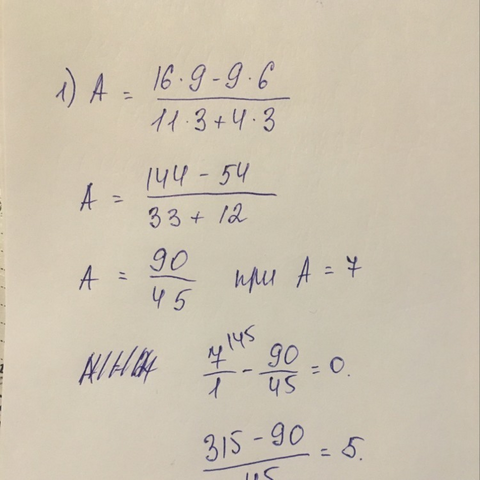 1) A = (16·9 - 9·6)/(11·3 + 4·3)
A = (144 - 54)/(33 + 12)
A = 90/45 при A = 7
7^145/1 - 90/45 = 0.
(315 - 90)/45 = 5.